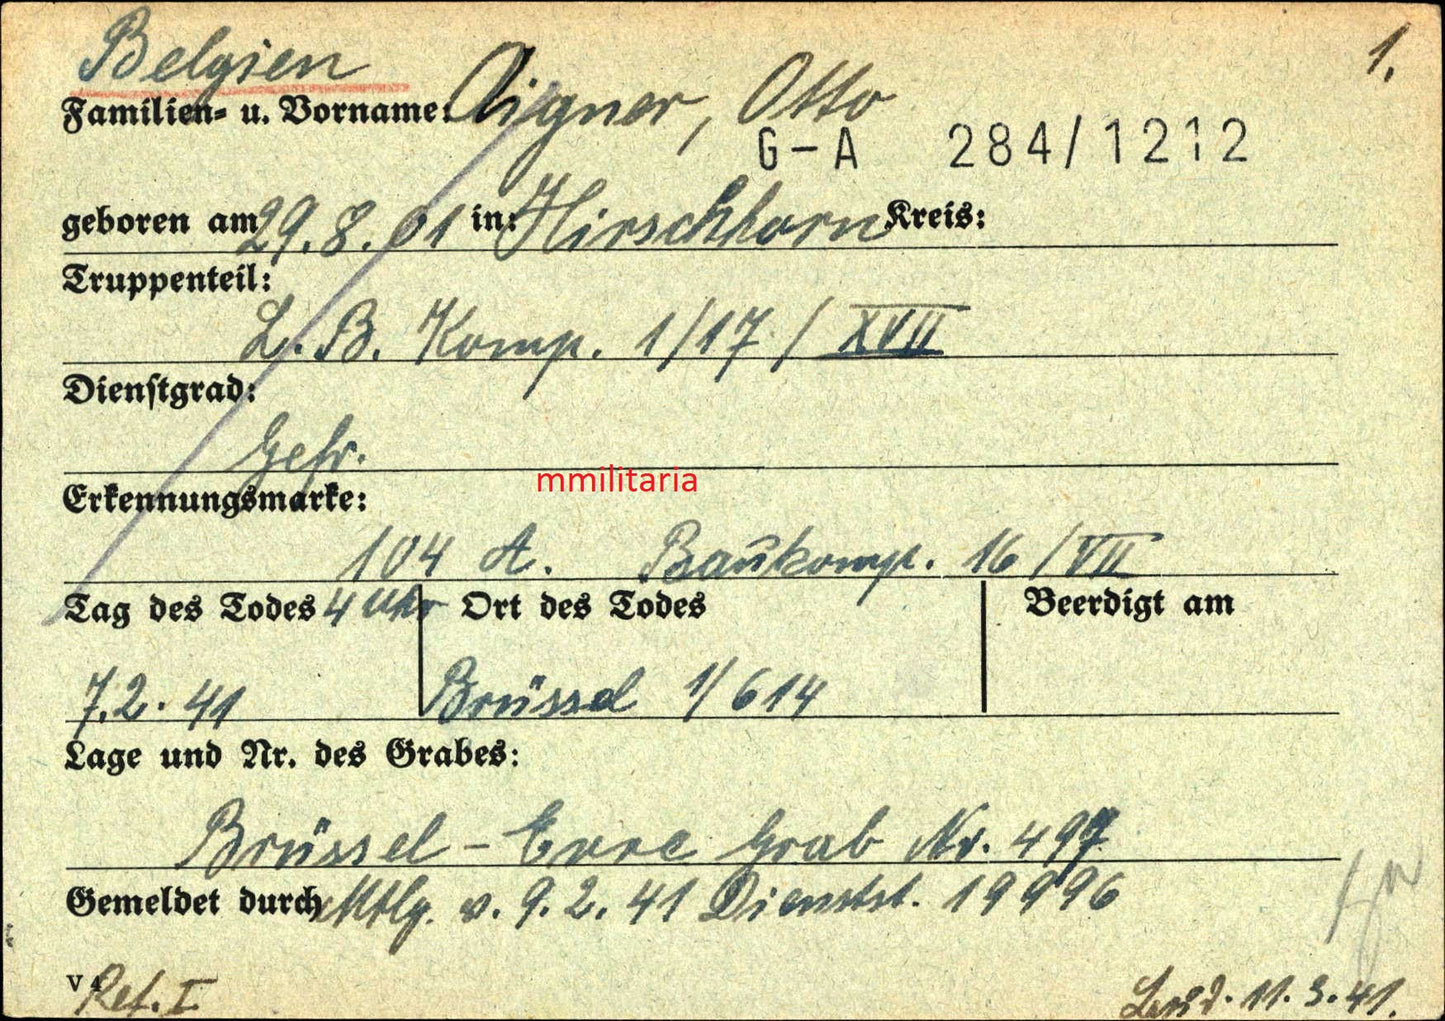 Belgien 1.
Familien- u. Vorname: Aigner, Otto
G-A 284/1212
geboren am 29.8.01 in: Hirschhorn Kreis:
Truppenteil:
L. B. Komp. 1/17 / XVII
Dienstgrad:
Gefr.
mmilitaria
Erkennungsmarke:
104 A. Baukomp. 16 / VII
Tag des Todes 4 Uhr Ort des Todes Beerdigt am
7.2.41 Brüssel 1/614
Lage und Nr. des Grabes:
Brüssel - Evre Grab Nr. 497
Gemeldet durch Mtlg. v. 9.2.41 Dienstst. 19996
V 4 Ref. I 11.3.41.